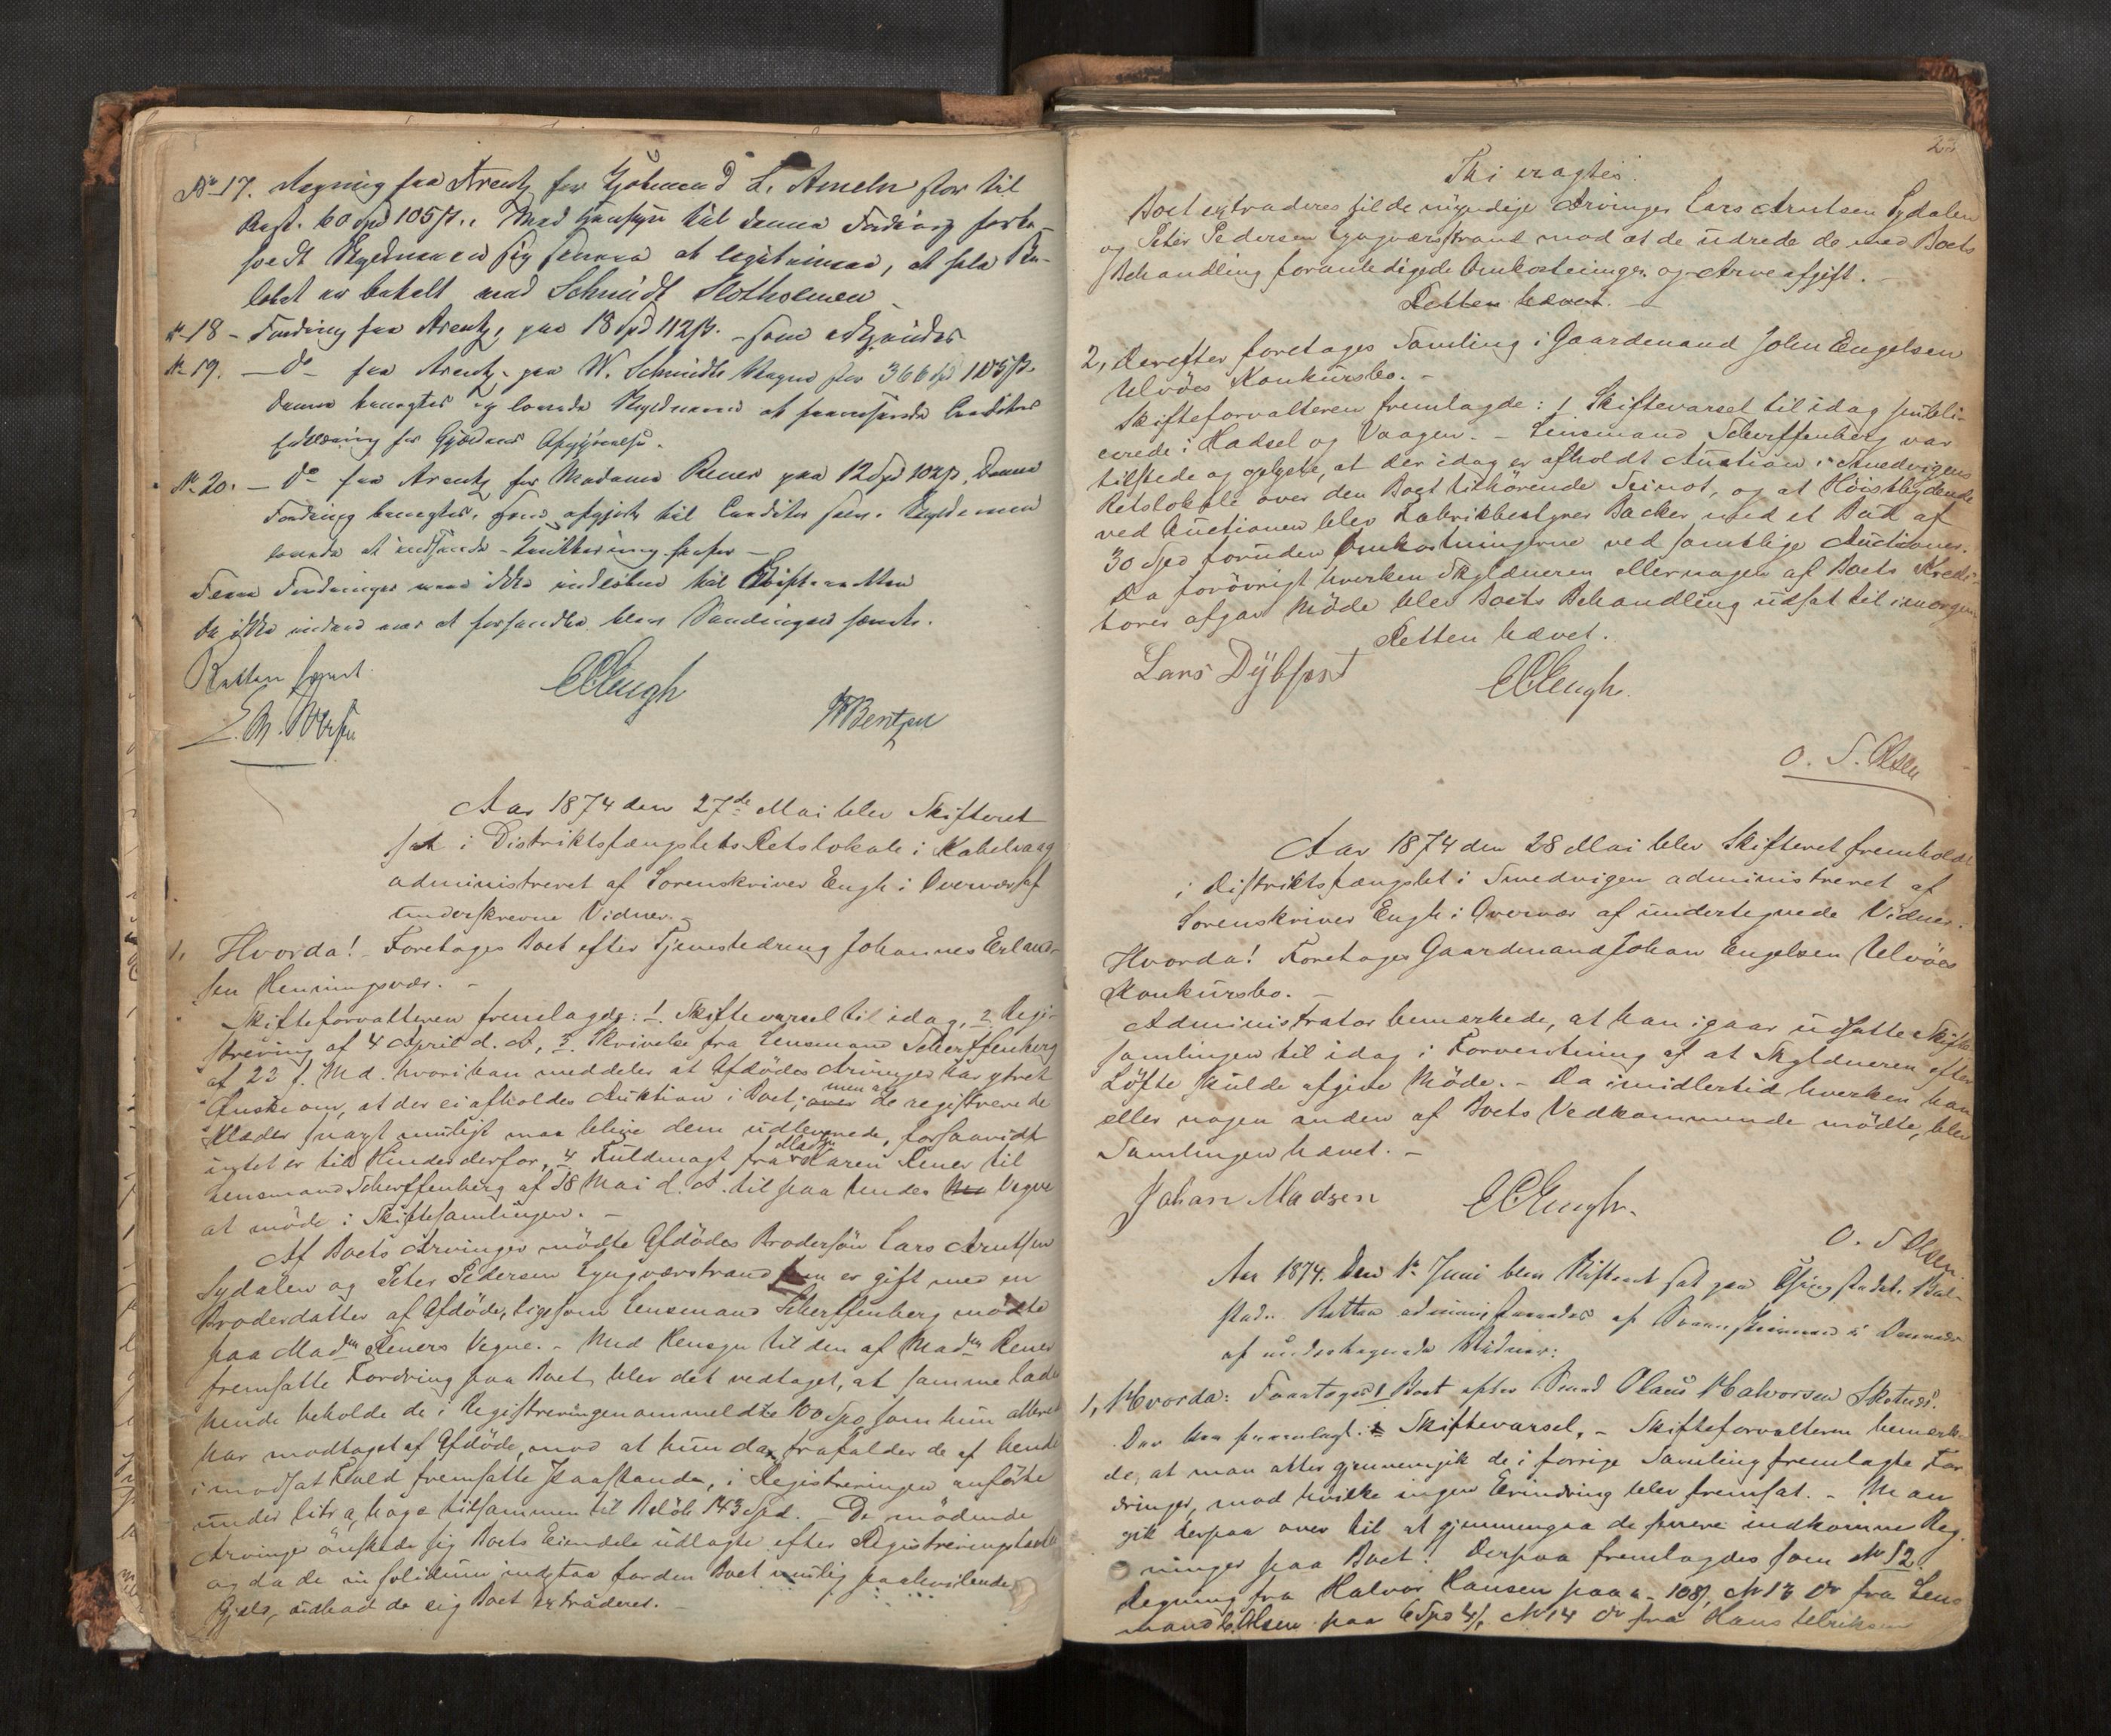 No 17. Regning fra Arentz for Kjøbmand L. Ameln stor til
Rest. 60 Spd 105 ß. Med Hensyn til denne Fordring forbe-
holdt Skyldneren sig senere at legitimere, at hele Be-
løbet er betalt med Schmidt Slotholmen
No 18 - Fordring fra Arentz, paa 18 Spd 112 ß. - som erkjendes
No 19. — Do fra Arentz paa W. Schmidts Vegne stor 366 Spd 115 ß.
denne benegtes og lovede Skyldneren at fremsende Creditors
Erklæring for Gjældens Afgjørelse.
No 20. — Do fra Arentz for Madame Rener paa 12 Spd 102 ß. Denne
Fordring benegtes, som afgjort til Creditor selv. Skyldneren
lovede at indsende Qvittering herfor —
Flere Fordringer vare ikke indløbne til Skifteretten
Da ikke videre var at forhandle blev Samlingen hævet.
Retten hævet.
CCEngh
W Bentzen
Aar 1874 den 27de Mai blev Skifteret
sat i Distriktsfængslets Retslokale i Kabelvaag
administreret af Sorenskriver Engh i Overvær af
underskrevne Vidner. -
1, Hvorda! - Foretages Boet efter Tjenestedreng Johannes Erland-
sen Henningsvær. -
Skifteforvalteren fremlagde: 1. Skiftevarsel til idag, 2 Regi-
strering af 4 April d. A, 3. Skrivelse fra Lensmand Scherffenberg
af 22 f. Md. hvori han meddeler at Afdødes Arvinger har ytret
Ønske om, at der ei afholdes Auktion i Boet; men at de registrerede
Klæder snarest muligt maa blive dem udleverede, forsaavidt
intet er til Hinder derfor, 4 Fuldmagt fra Madm Karen Rener til
Lensmand Scherffenberg af 18 Mai d. A. til paa hendes Vegne
at møde i Skiftesamlingen. -
Af Boets Arvinger mødte Afdødes Brodersøn Lars Arntsen
Sydalen og Peter Pedersen Lyngværstrand som er gift med en
Broderdatter af Afdøde, ligesom Lensmand Scherffenberg mødte
paa Madm Reners Vegne. - Med Hensyn til den af Madm Rener
fremsatte Fordring paa Boet, blev det vedtaget, at samme lade
hende beholde de i Registreringen ommeldte 100 Spd som hun allerede
har modtaget af Afdøde, mod at hun da frafalder de af hende
i modsat Fald fremsatte Paastande, i Registreringen anførte
under litr a, b og c tilsammen til Beløb 143 Spd. - De mødende
Arvinger ønskede sig Boets Eiendele udlagte efter Registreringstaxt
og da de in solidum indestaa for den Boet muligt paahvilende
Gjæld, udbad de sig Boet extraderet. -
Thi eragtes:
Boet extraderes til de myndige Arvinger Lars Arntsen Sydalen
og Peter Pedersen Lyngværstrand mod at de udrede de med Boets
Behandling foranledigede Omkostninger og Arveafgift. -
Retten hævet. -
2, Derefter foretages Samling i Gaardmand John Engelsen
Ulvøes Konkursbo. -
Skifteforvalteren fremlagde: 1 Skiftevarsel til idag publi-
cerede i Hadsel og Vaagen. - Lensmand Scherffenberg var
tilstede og oplyste, at der idag er afholdt Auction i Smedvigens
Retslokale over den Boet tilhørende Seinot, og at Høistbydende
ved Auctionen blev Fabrikbestyrer Backer med et Bud af
30 Spd foruden Omkostningerne ved samtlige Auctioner.
Da forøvrigt hverken Skyldneren eller nogen af Boets Kredi-
torer afgav Møde blev Boets Behandling udsat til imorgen
Retten hævet.
Lars Dybfest
CCEngh.
O. S. Olsen
Aar 1874 den 28 Mai blev Skifteret fremholdt
i Distriktsfængslet i Smedvigen administreret af
Sorenskriver Engh i Overvær af undertegnede Vidner.
Hvorda! Foretages Gaardmand Johan Engelsen Ulvøes
Konkursbo. -
Administrator bemærkede, at han igaar udsatte Skifte-
samlingen til idag i Forventning af at Skyldneren efter
Løfte skulde afgive Møde. - Da imidlertid hverken han
eller nogen anden af Boets Vedkommende mødte, blev
Samlingen hævet. -
Johan Madsen
CCEngh.
O. S Olsen.
Aar 1874. Den 1te Juni blev Skifteret sat paa Thingstedet Bal-
stad. Retten administreredes af Sorenskriveren i Overvær
af undertegnede Vidner:
1, Hvorda: Foretoges 1 Boet efter Smed Olaus Halvorsen Skotnes.
Der blev fremlagt: 1 Skiftevarsel, - Skifteforvalteren bemærke-
de, at man atter gjennemgik de i forrige Samling fremlagte For-
dringer, mod hvilke ingen Erindring blev fremsat. - Man
gik derpaa over til at gjennemgaa de senere indkomne Reg-
ninger paa Boet: Derpaa fremlagdes som No 12.
Regning fra Halvor Hansen paa a - 108 ß, No 13 Do fra Lens-
mand C. Olsen paa 6 Spd 4 ß, No 14 Do fra Hans Ulriksen